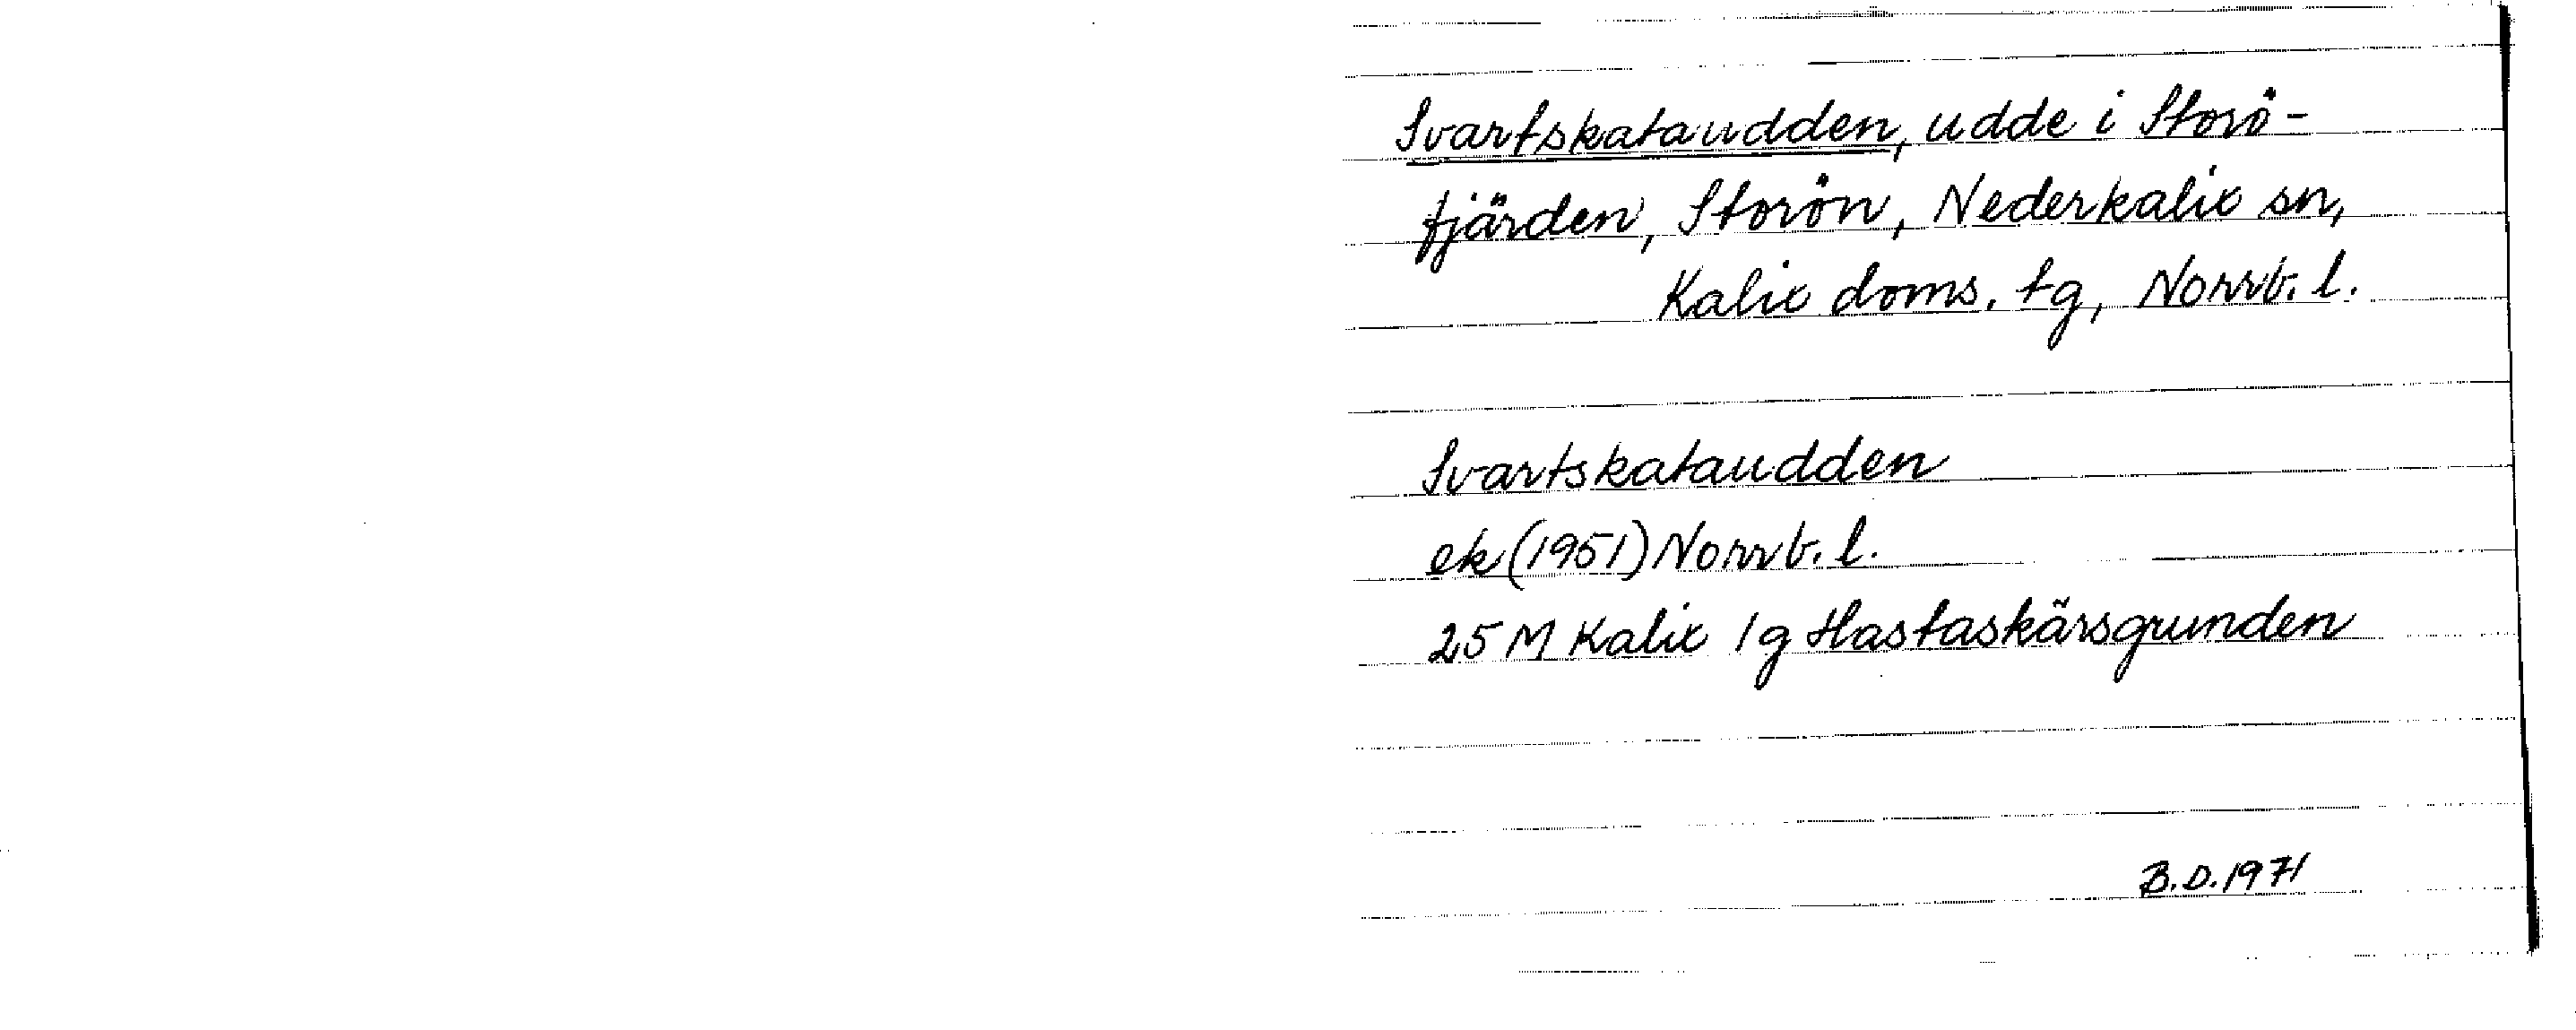 Svartskataudden, udde i Storö-
fjärden, Storön, Nederkalix sn,
Kalix doms. tg, Norrb. l.
Svartskataudden
ek (1951) Norrb. l.
25 M Kalix 1g Hastaskärsgrunden
B.D. 1971